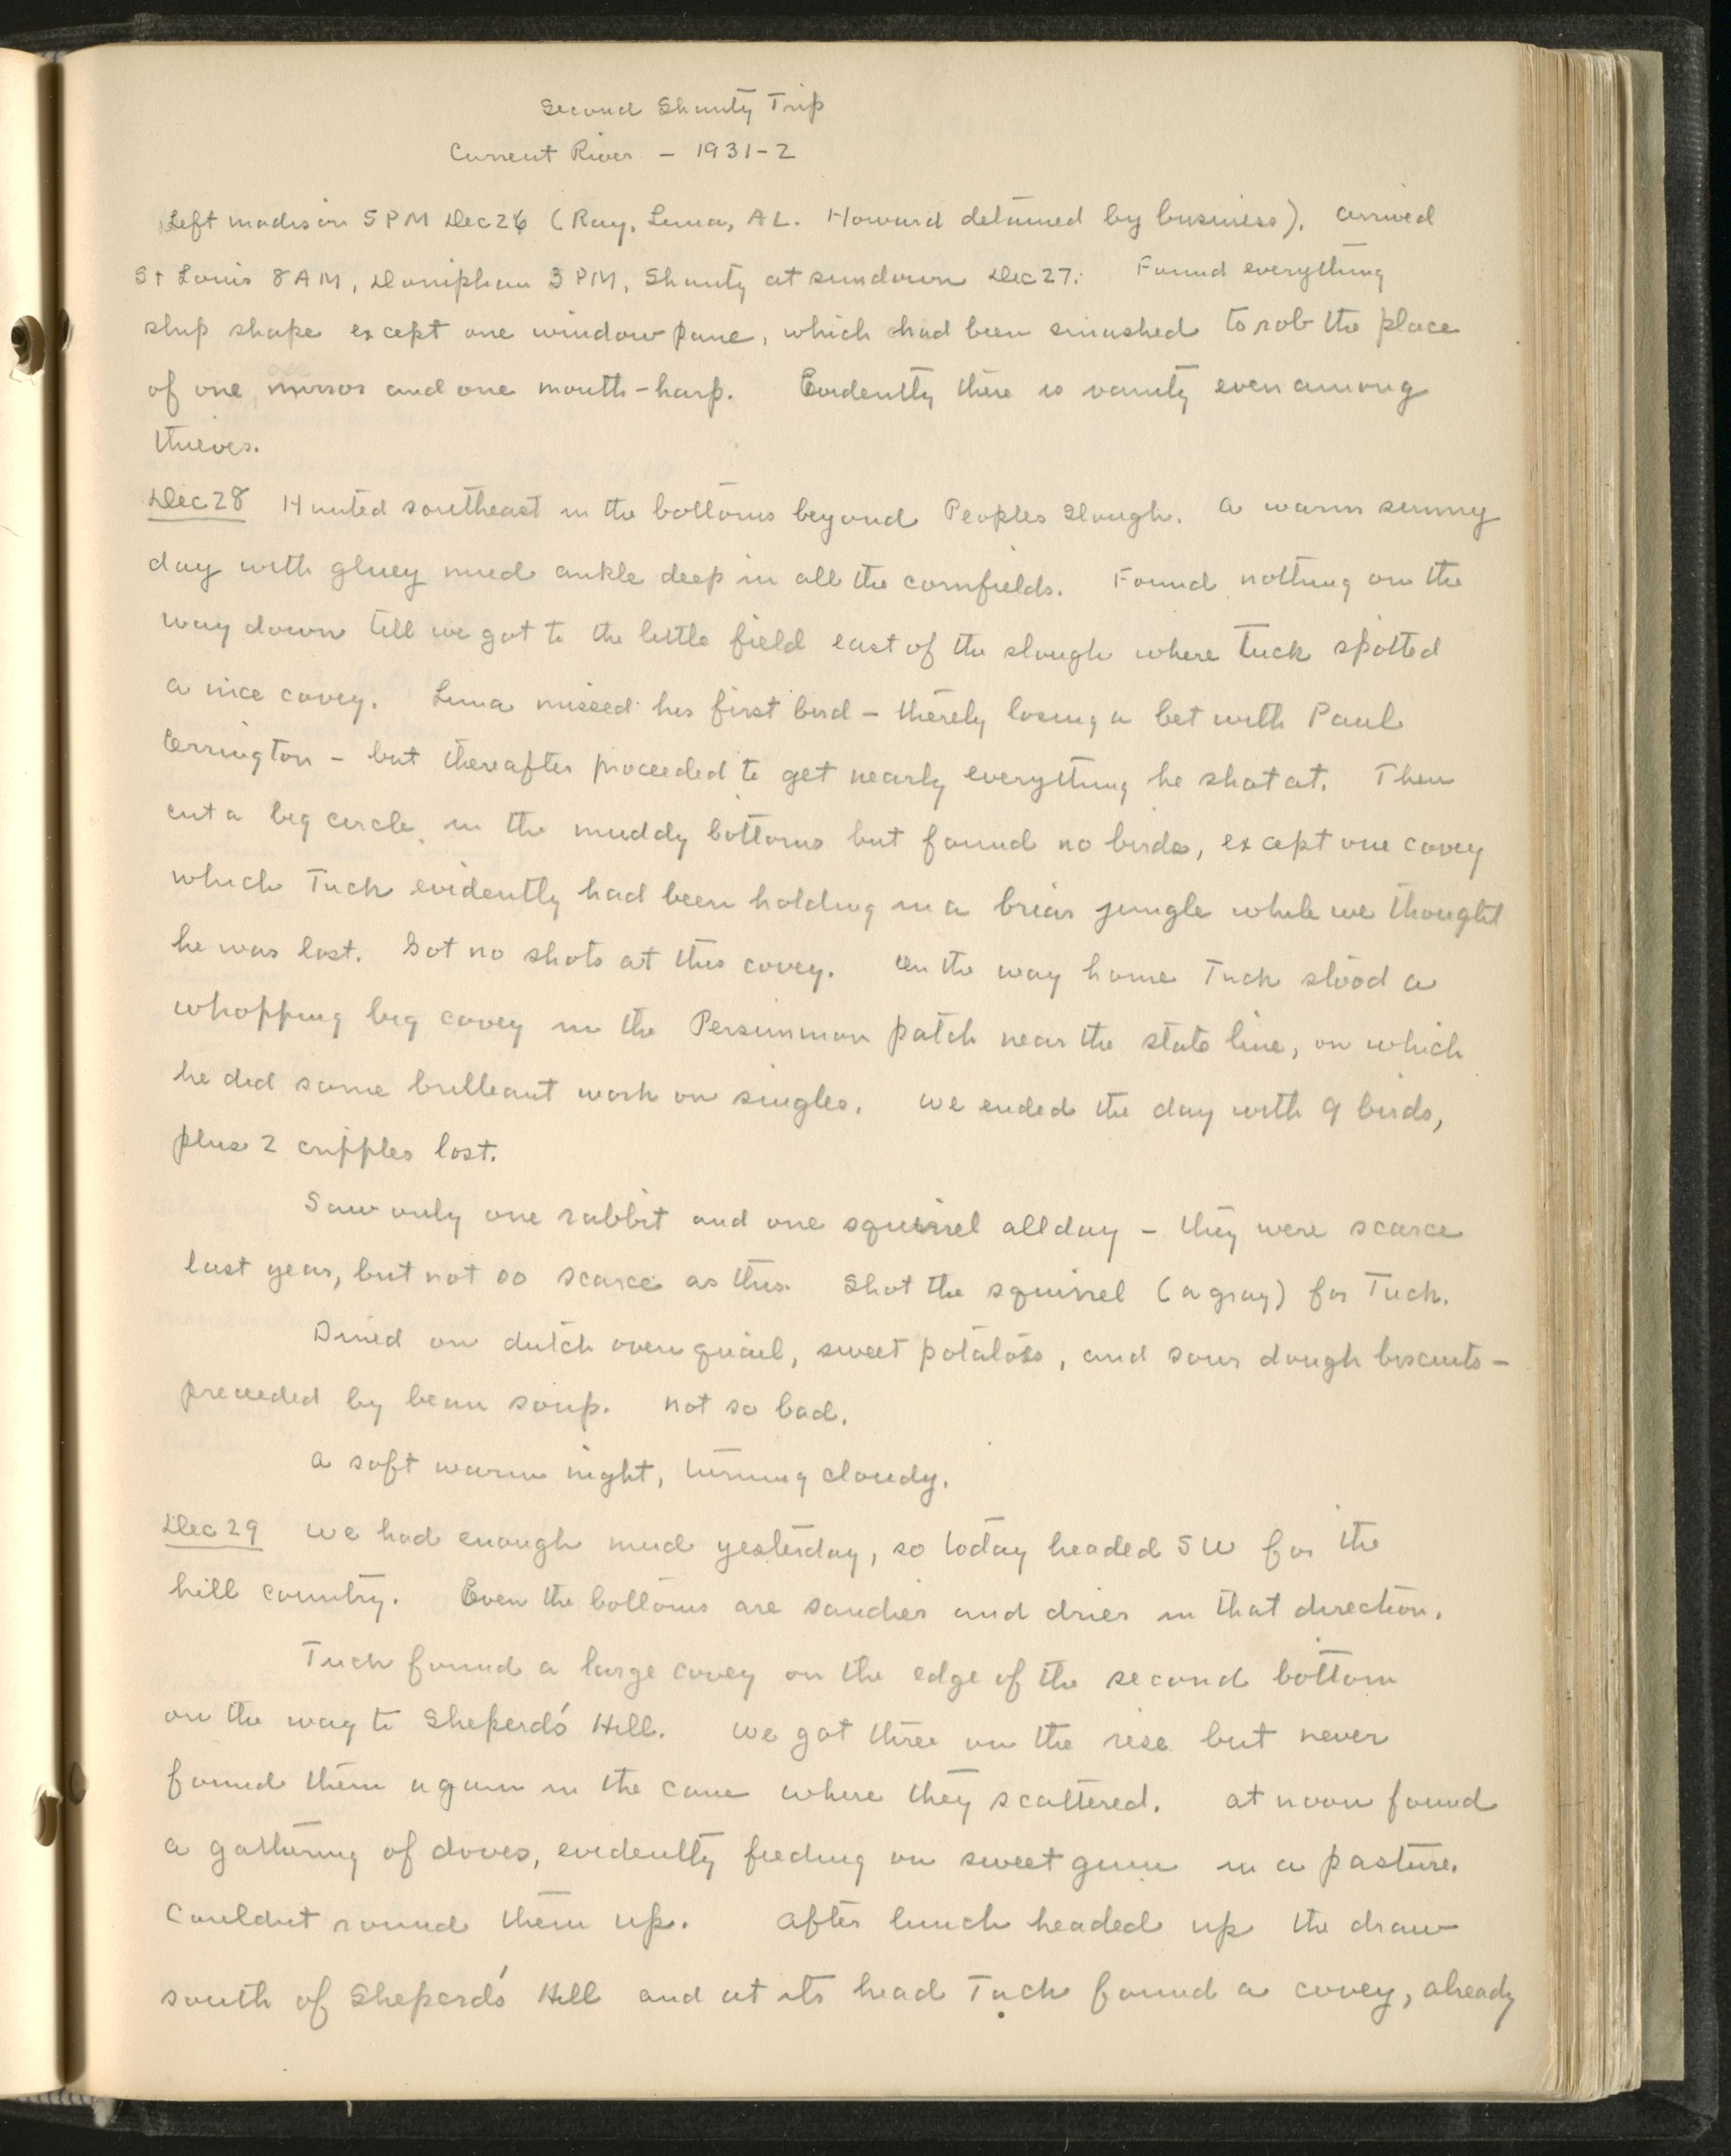 Second Shanty Trip
Current River - 1931-2
Left Madison 5 PM Dec 26 (Ray, Luna, AL. Howard detained by business). Arrived
St Louis 8 AM, Doniphan 3 PM, Shanty at sundown Dec 27. Found everything
ship shape except one window pane, which had been smashed to rob the place
of one mirror and one mouth-harp. Evidently there is vanity even among
thieves.
Dec 28 Hunted southeast in the bottoms beyond Peoples Slough. A warm sunny
day with gluey mud ankle deep in all the cornfields. Found nothing on the
way down till we got to the little field east of the slough where Tuck spotted
a nice covey. Luna missed his first bird - thereby losing a bet with Paul
Errington - but thereafter proceeded to get nearly everything he shot at. Then
cut a big circle in the muddy bottoms but found no birds, except one covey
which Tuck evidently had been holding in a briar jungle while we thought
he was lost. Got no shots at this covey. On the way home Tuck stood a
whopping big covey in the Persimmon patch near the state line, on which
he did some brilliant work on singles. We ended the day with 9 birds,
plus 2 cripples lost.
Saw only one rabbit and one squirrel all day - they were scarce
last year, but not so scarce as this. Shot the squirrel (a gray) for Tuck.
Dined on dutch oven quail, sweet potatoes, and sour dough biscuits -
preceeded by bean soup. Not so bad.
A soft warm night, turning cloudy.
Dec 29 We had enough mud yesterday, so today headed SW for the
hill country. Even the bottoms are sandier and drier in that direction.
Tuck found a large covey on the edge of the second bottom
on the way to Sheperd's Hill. We got three on the rise but never
found them again in the cane where they scattered. At noon found
a gathering of doves, evidently feeding on sweet gum in a pasture.
Couldnt round them up. After lunch headed up the draw
south of Sheperd's Hill and at its head Tuck found a covey, already